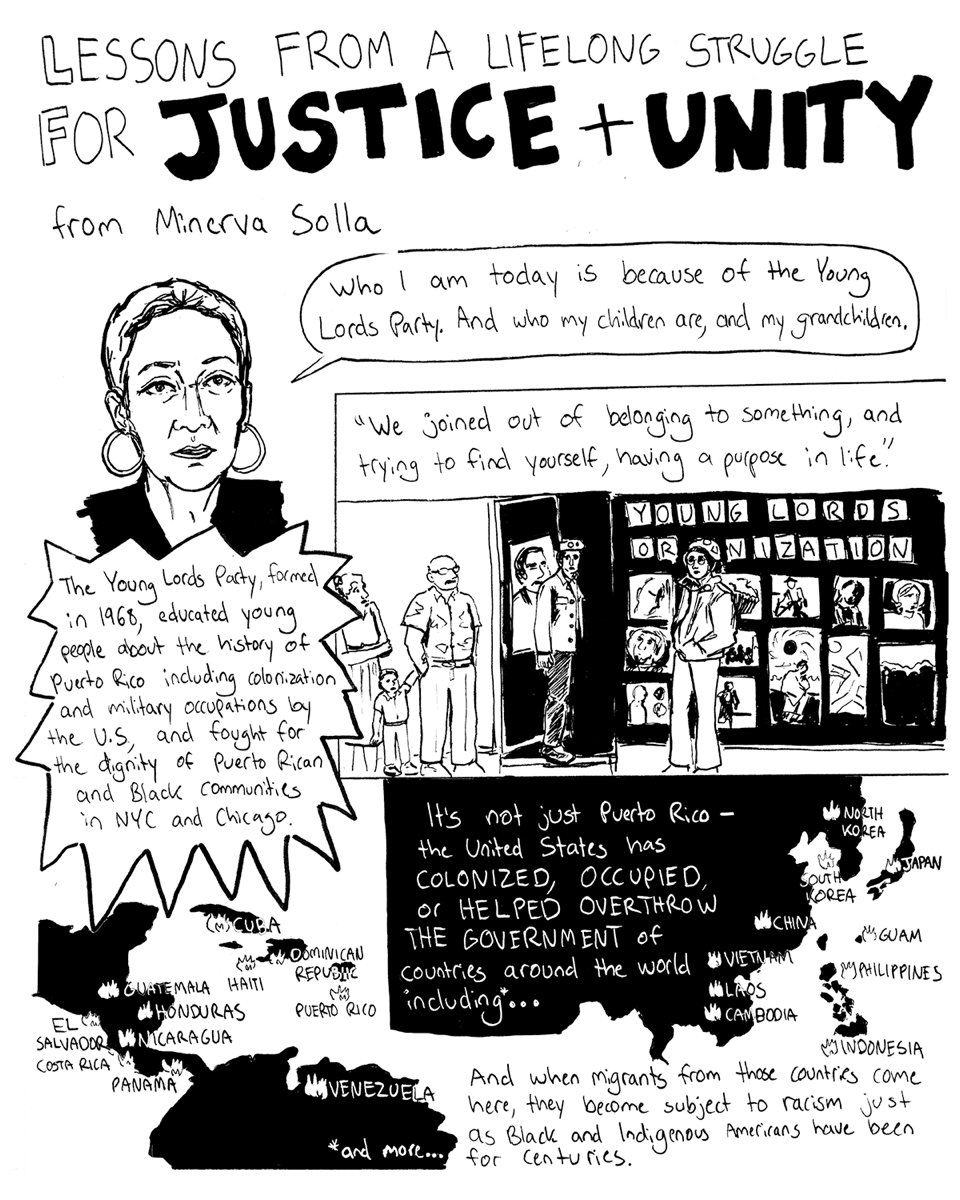 LESSONS FROM A LIFELONG STRUGGLE
FOR JUSTICE + UNITY
from Minerva Solla
Who I am today is because of the Young
Lords Party. And who my children are, and my grandchildren.
"We joined out of belonging to something, and
trying to find yourself, having a purpose in life."
YOUNG LORDS
OR NIZATION
The Young Lords Party, formed
in 1968, educated young
people about the history of
Puerto Rico including colonization
and military occupations by
the U.S., and fought for
the dignity of Puerto Rican
and Black communities
in NYC and Chicago.
It's not just Puerto Rico –
the United States has
COLONIZED, OCCUPIED,
or HELPED OVERTHROW
THE GOVERNMENT of
countries around the world
including*...
CUBA
DOMINICAN
REPUBLIC
HAITI
PUERTO RICO
GUATEMALA
HONDURAS
EL
SALVADOR
NICARAGUA
COSTA RICA
PANAMA
VENEZUELA
*and more...
NORTH
KOREA
JAPAN
SOUTH
KOREA
CHINA
GUAM
VIETNAM
PHILIPPINES
LAOS
CAMBODIA
INDONESIA
And when migrants from those countries come
here, they become subject to racism just
as Black and Indigenous Americans have been
for centuries.